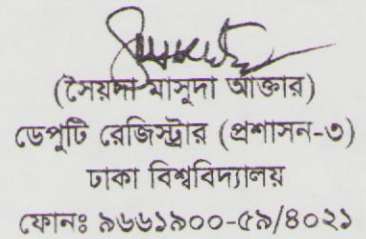 (সৈয়দা মাসুদা আক্তার)
ডেপুটি রেজিস্ট্রার (প্রশাসন-৩)
ঢাকা বিশ্ববিদ্যালয়
ফোনঃ ৯৬৬১৯০০-৫৯/৪০২১